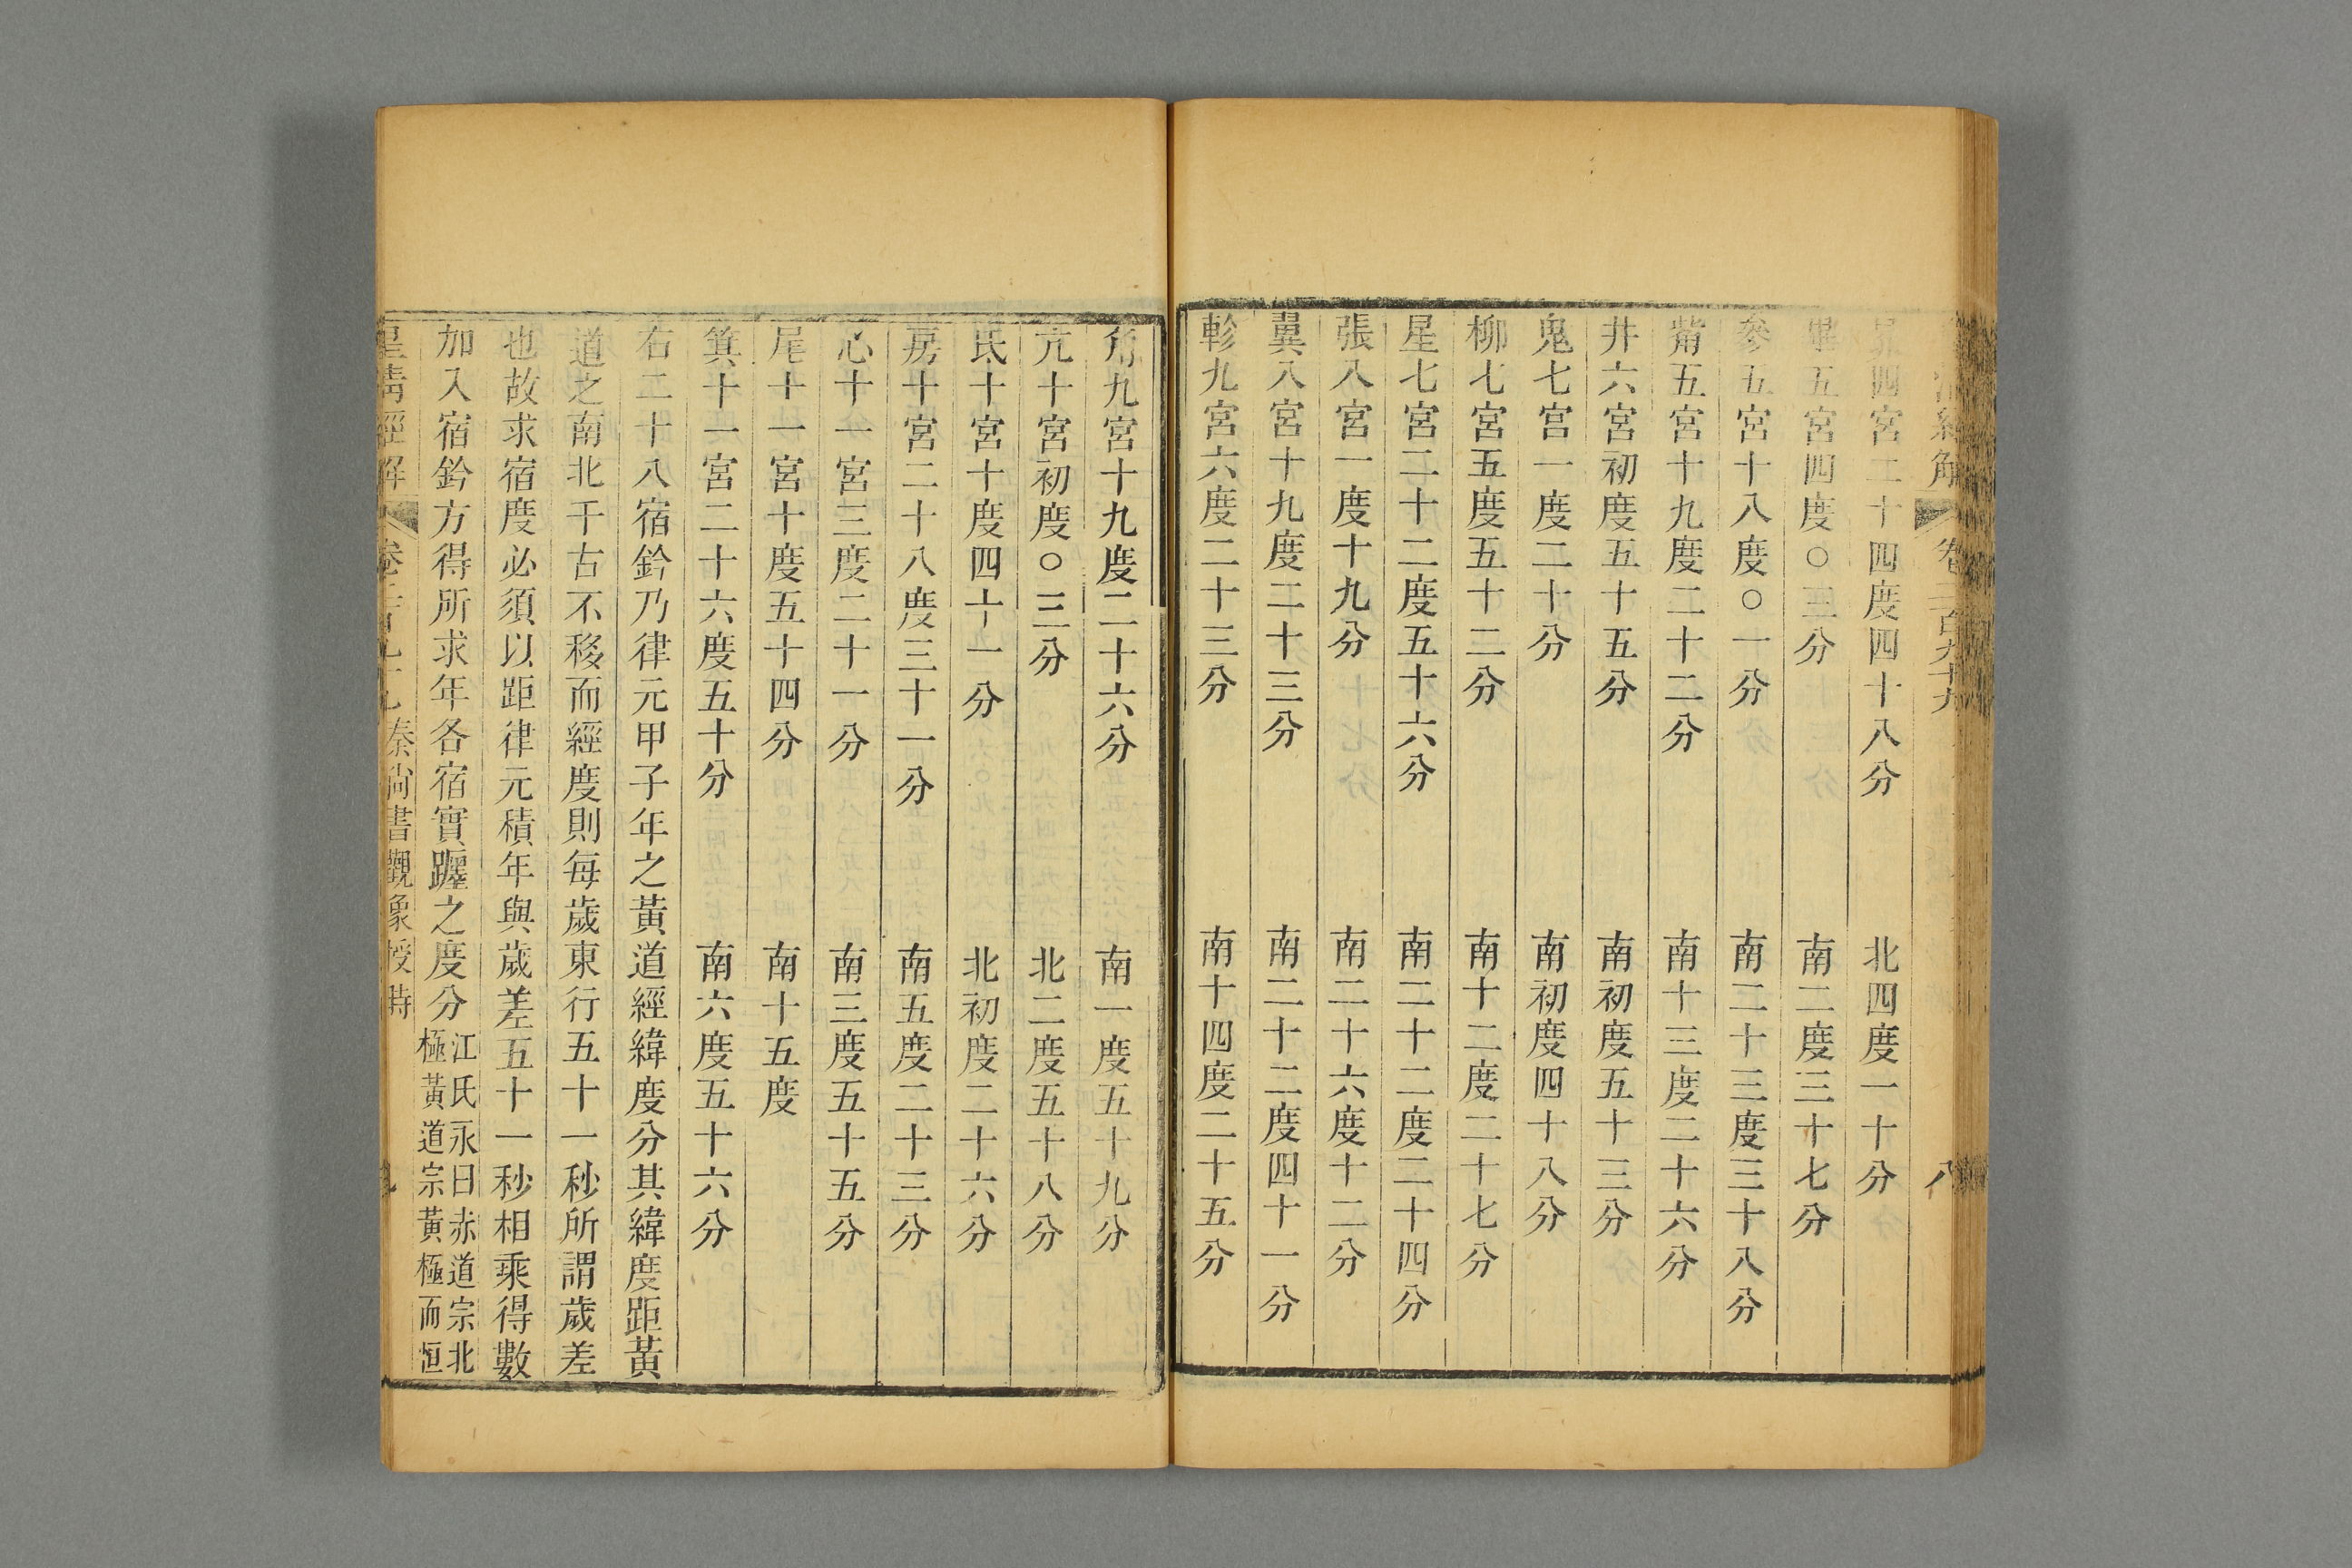 經解 卷二百九十九 八
昴四宮二十四度四十八分 北四度一十分
畢五宮四度〇三分 南二度三十七分
參五宮十八度〇一分 南二十三度三十八分
觜五宮十九度二十二分 南十三度二十六分
井六宮初度五十五分 南初度五十三分
鬼七宮一度二十分 南初度四十八分
柳七宮五度五十二分 南十二度二十七分
星七宮二十二度五十六分 南二十二度二十四分
張八宮一度十九分 南二十六度十二分
翼八宮十九度二十三分 南二十二度四十一分
軫九宮六度二十三分 南十四度二十五分
角九宮十九度二十六分 南一度五十九分
亢十宮初度〇三分 北二度五十八分
氐十宮十度四十一分 北初度二十六分
房十宮二十八度三十一分 南五度二十三分
心十一宮三度二十一分 南三度五十五分
尾十一宮十度五十四分 南十五度
箕十一宮二十六度五十分 南六度五十六分
右二十八宿鈐乃律元甲子年之黃道經緯度分其緯度距黃
道之南北千古不移而經度則每歲東行五十一秒所謂歲差
也故求宿度必須以距律元積年與歲差五十一秒相乘得數
加入宿鈐方得所求年各宿實躔之度分江氏永曰赤道宗北
極黃道宗黃極而恒
皇清經解 卷二百九十九 秦尚書觀象授時